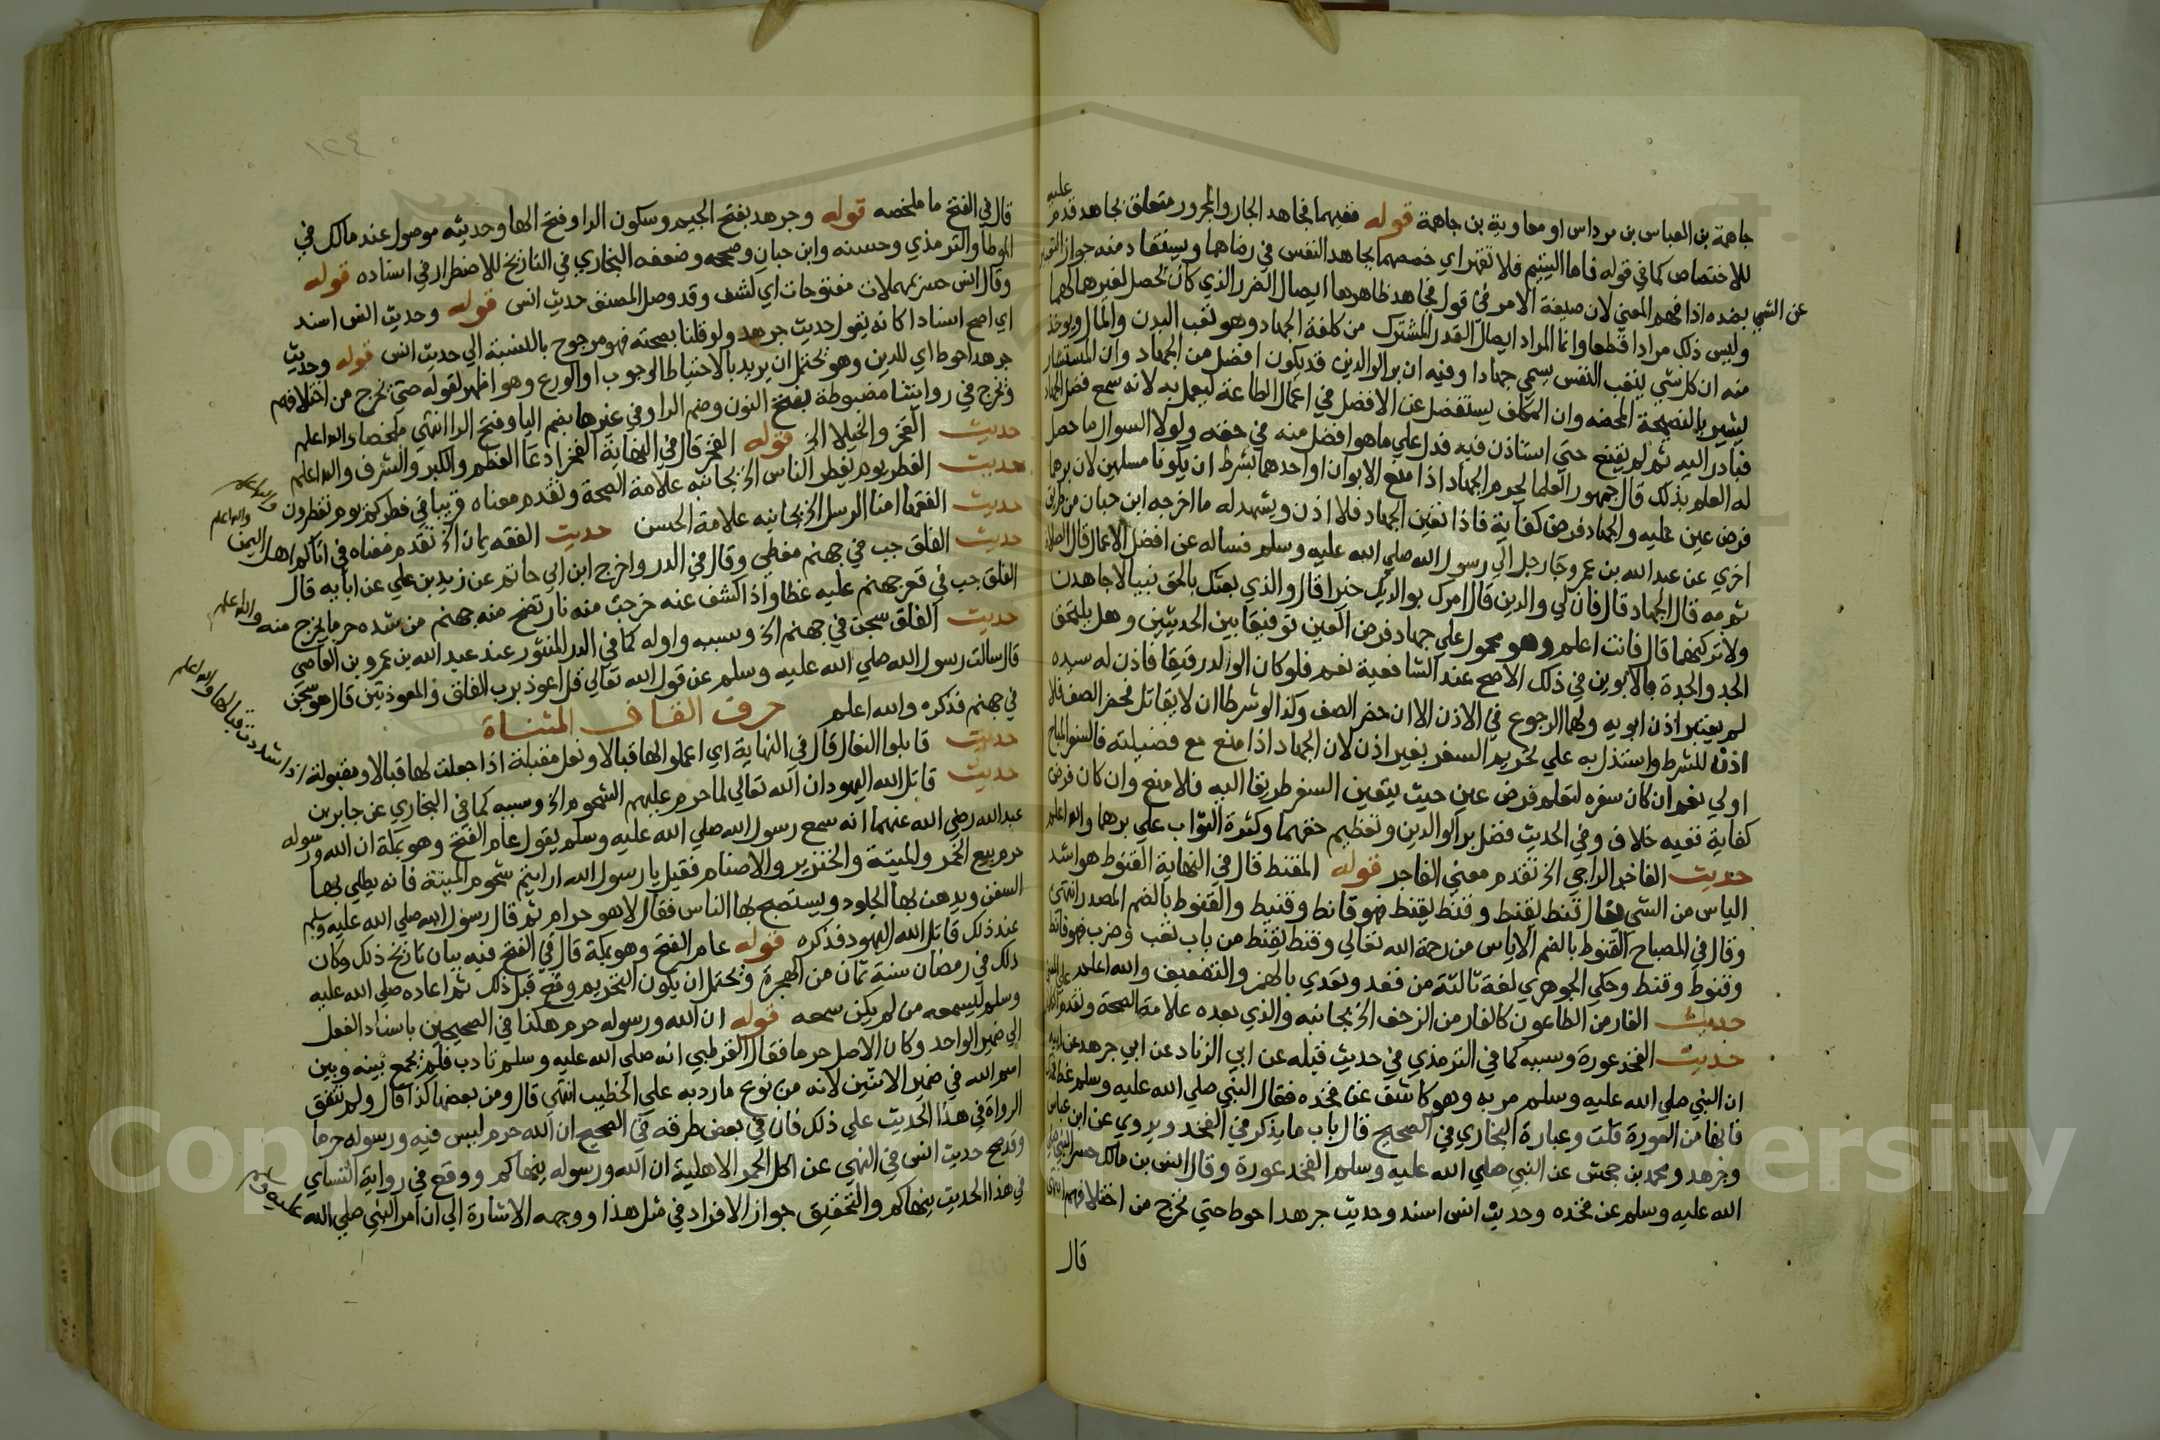 جاهمة بن العباس بن مرداس او معاوية بن جاهمة قوله ففيهما فجاهد الجار والمجرور متعلق بجاهد قدم عليه
للاختصاص كما في قوله فاما اليتيم فلا تقهر اي خصهما بجاهد النفس في رضاهما ويستفاد منه جواز التعبير
عن الشي بضده اذا فهم المعني لان صيغة الامر في قوله فجاهد ظاهرها ايصال الضرر الذي كان يحصل لغيرهما لهما
وليس ذلك مرادا قطعا وانما المراد ايصال القدر المشترك من كلفة الجهاد وهو تعب البدن والمال ويوخذ
منه ان كل شي يتعب النفس يسمي جهادا وفيه ان بر الوالدين قد يكون افضل من الجهاد وان المستشار
يشير بالنصيحة المحضه وان المكلف يستفصل عن الافضل في اعمال الطاعة ليعمل به لانه سمع فضل الجهاد
فبادر اليه ثم لم يقنع حتي استاذن فيه فدل علي ما هو افضل منه في حقه ولولا السوال ما حصل
له العلم بذلك قال جمهور العلما يحرم الجهاد اذا منع الابوان او احدهما بشرط ان يكونا مسلمين لان برهما
فرض عين عليه والجهاد فرض كفاية فاذا تعين الجهاد فلا اذن ويشهد له ما اخرجه ابن حبان من طريق
اخري عن عبد الله بن عمرو جا رجل الي رسول الله صلي الله عليه وسلم فساله عن افضل الاعمال قال الصلاة
ثم مه قال الجهاد قال فان لي والدين قال امرك بوالديك خيرا قال والذي بعثك بالحق نبيا لاجاهدن
ولاتركنهما قال فانت اعلم وهو محمول علي جهاد فرض العين توفيقا بين الحديثين وهل يلتحق
الجد والجدة بالابوين في ذلك الاصح عند الشافعية نعم فلو كان الوالد رقيقا فاذن له سيده
لم يعتبر اذن ابويه ولهما الرجوع في الاذن الا ان حضر الصف وكذا لو شرطا ان لا يقاتل فحضر الصف فلا
اذن للشرط واستدل به علي تحريم السفر بغير اذن لان الجهاد اذا منع مع فضيلته فالسفر المباح
اولي نعم ان كان سفره لتعلم فرض عين حيث يتعين السفر طريقا اليه فلا منع وان كان فرض
كفاية ففيه خلاف وفي الحديث فضل بر الوالدين وتعظيم حقهما وكثرة الثواب علي برهما والله اعلم
حديث الفاجر الراجي الخ تقدم معني الفاجر قوله المقنط قال في النهاية القنوط هو اشد
الياس من الشي يقال قنط يقنط وقنط يقنط فهو قانط وقنيط والقنوط بالضم المصدر انتهي
وقال في المصباح القنوط بالضم الاياس من رحمة الله تعالي وقنط يقنط من باب تعب وضرب فهو قانط
وقنوط وقنط وحكي الجوهري لغة ثالثة من قعد ويعدي بالهمز والتضعيف والله اعلم
حديث الفار من الطاعون كالفار من الزحف الخ بجانبه والذي بعده علامة الصحة وتقدم
حديث الفخذ عورة وسببه كما في الترمذي في حديث قبله عن ابي الزناد عن ابي جرهد عن ابيه
ان النبي صلي الله عليه وسلم مر به وهو كاشف عن فخذه فقال النبي صلي الله عليه وسلم غط فخذك
فانها من العورة قلت وعبارة البخاري في الصحيح قال باب ما يذكر في الفخذ ويروي عن ابن عباس
وجرهد ومحمد بن جحش عن النبي صلي الله عليه وسلم الفخذ عورة وقال انس بن مالك حسر النبي صلي
الله عليه وسلم عن فخذه وحديث انس اسند وحديث جرهد احوط حتي نخرج من اختلافهم انتهى
قال
١٢٤
قال في الفتح ما ملخصه قوله وجرهد بفتح الجيم وسكون الرا وفتح الها وحديثه موصول عند مالك في
الموطا والترمذي وحسنه وابن حبان وصححه وضعفه البخاري في التاريخ للاضطراب في اسناده قوله
وقال انس حسر بمهملات مفتوحات اي كشف وقد وصل المصنف حديث انس قوله وحديث انس اسند
اي اصح اسنادا كانه يقول حديث جرهد ولو قلنا بصحته فهو مرجوح بالنسبة الي حديث انس قوله وحديث
جرهد احوط اي للدين وهو يحتمل ان يريد بالاحتياط الوجوب او الورع وهو اظهر لقوله حتي نخرج من اختلافهم
ونخرج في روايتنا مضبوطة بفتح النون وضم الرا وفي غيرها بضم اليا وفتح الرا انتهي ملخصا والله اعلم
حديث الفخر والخيلا الخ قوله الفخر قال في النهاية الفخر ادعا العظم والكبر والشرف والله اعلم
حديث الفطر يوم يفطر الناس الخ بجانبه علامة الصحة وتقدم معناه قريبا في فطركم يوم تفطرون والله اعلم
حديث الفقها امنا الرسل الخ بجانبه علامة الحسن حديث الفقه يمان الخ تقدم معناه في اتاكم اهل اليمن والله اعلم
حديث الفلق جب في جهنم مغطي وقال في الدر واخرج ابن ابي حاتم عن زيد بن علي عن ابايه قال
الفلق جب في قعر جهنم عليه غطا واذا كشف عنه خرجت منه نار تضج منه جهنم من شده حر ما يخرج منه والله اعلم
حديث الفلق سجن في جهنم الخ وسببه واوله كما في الدر المنثور عند عبد الله بن عمرو بن العاصي
قال سالت رسول الله صلي الله عليه وسلم عن قول الله تعالي قل اعوذ برب الفلق والمعوذتين قال هو سجن
في جهنم فذكره والله اعلم حرف القاف المثناة
حديث قابلوا النعال قال في النهاية اي اعملوا لها قبالا ونعل مقبلة اذا جعلت لها قبالا ومقبولة اذا شددت قبالها والله اعلم
حديث قاتل الله اليهود ان الله تعالي لما حرم عليهم الشحوم الخ وسببه كما في البخاري عن جابر بن
عبد الله رضي الله عنهما انه سمع رسول الله صلي الله عليه وسلم يقول عام الفتح وهو بمكة ان الله ورسوله
حرم بيع الخمر والميتة والخنزير والاصنام فقيل يا رسول الله ارايتم شحوم الميتة فانه يطلي بها
السفن ويدهن بها الجلود ويستصبح بها الناس فقال لا هو حرام ثم قال رسول الله صلي الله عليه وسلم
عند ذلك قاتل الله اليهود فذكره قوله عام الفتح وهو بمكة قال في الفتح فيه بيان تاريخ ذلك وكان
ذلك في رمضان سنة ثمان من الهجرة ويحتمل ان يكون التحريم وقع قبل ذلك ثم اعاده صلي الله عليه
وسلم ليسمعه من لم يكن سمعه قوله ان الله ورسوله حرم هكذا في الصحيحين باسناد الفعل
الي ضمير الواحد وكان الاصل حرما فقال القرطبي انه صلي الله عليه وسلم تادب فلم يجمع بينه وبين
اسم الله في ضمير الاثنين لانه من نوع ما رد به علي الخطيب انتهي قال ومن بعض كذا قال ولم تتفق
الرواة في هذا الحديث علي ذلك فان في بعض طرقه في الصحيح ان الله حرم ليس فيه ورسوله حرما
وقد صح حديث انس في النهي عن اكل الحمر الاهلية ان الله ورسوله ينهاكم ووقع في رواية النساي
في هذا الحديث ينهاكم والتحقيق جواز الافراد في مثل هذا ووجهه الاشارة الي ان امر النبي صلي الله عليه وسلم